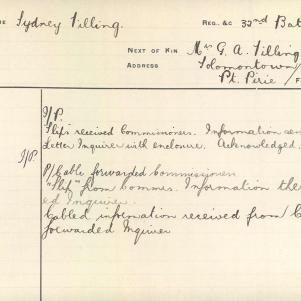 Sydney Tilling.
REG. &C 32nd Bat
NEXT OF KIN Mrs G. A. Tilling
ADDRESS Solomontown
Pt. Pirie
I/P.
Slips received Commissioners. Information
Letter Inquirer with enclosure. Acknowledged.
I/P P/Cable forwarded Commissioners
"Slip" from Commrs. Information
ed Inquirer.
Cabled information received from
forwarded Inquirer